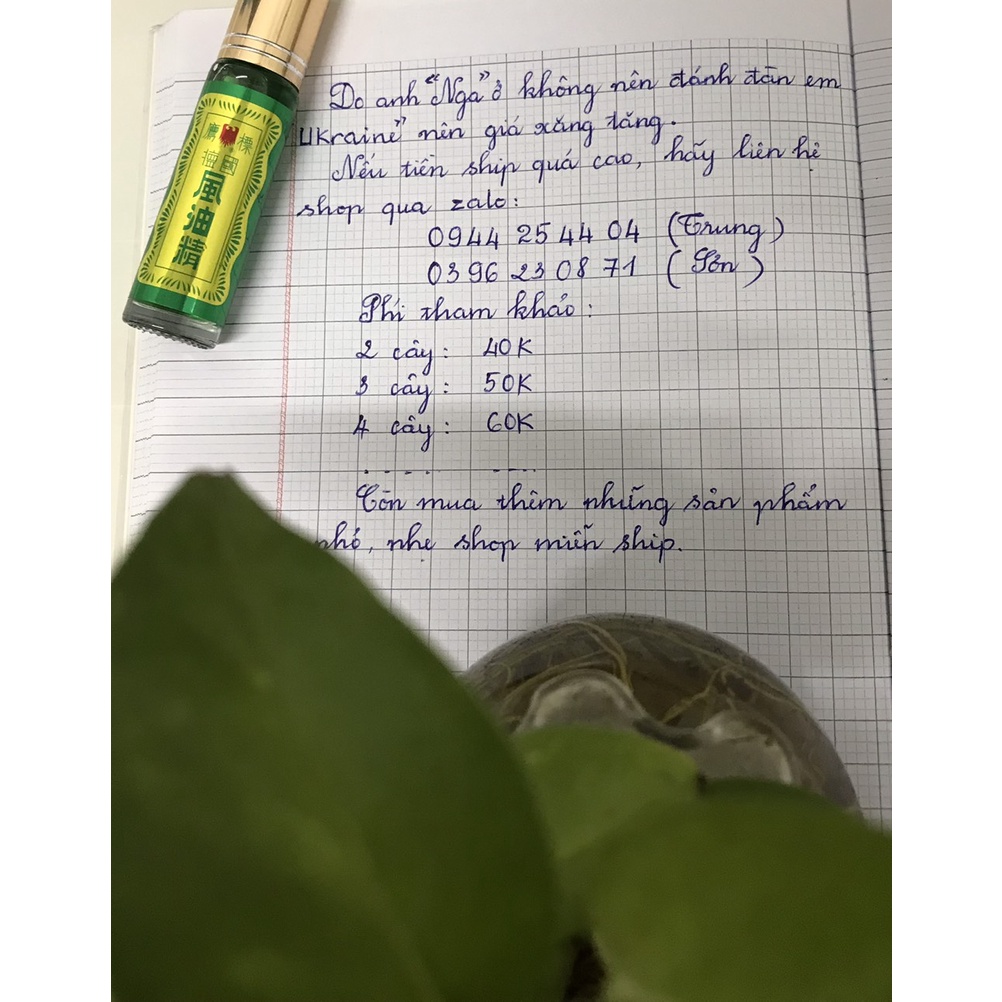 鷹標
德國
風油精
Do anh "Nga" ở không nên đánh đàn em
Ukraine" nên giá xăng tăng.
Nếu tiền ship quá cao, hãy liên hệ
shop qua zalo:
0944 25 44 04 (Trung)
0396 23 08 71 (Sơn)
Phí tham khảo:
2 cây: 40K
3 cây: 50K
4 cây: 60K
..... ....
Còn mua thêm những sản phẩm
nhỏ, nhẹ shop miễn ship.